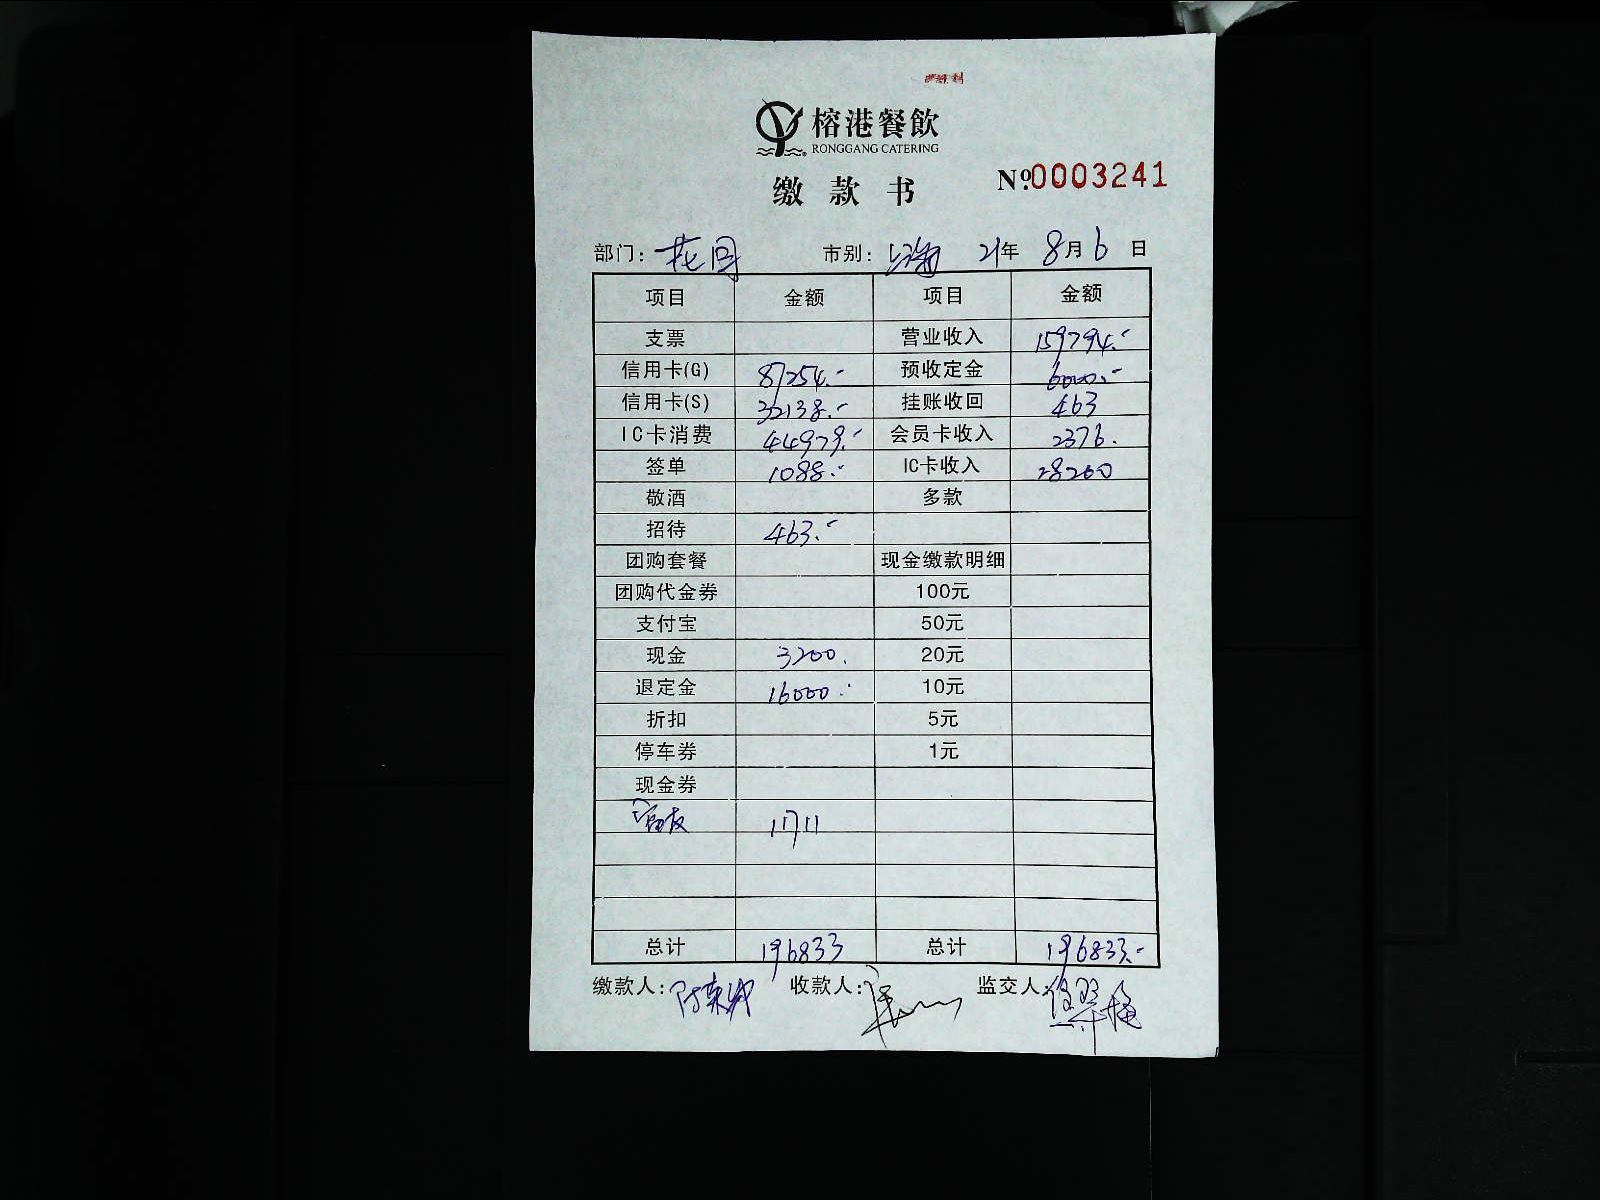 榕港餐飲
RONGGANG CATERING
缴款书 №0003241
部门: 花园 市别: 上海 21年 8月 6日
项目 金额 项目 金额
支票 营业收入 159794.-
信用卡(G) 87254.- 预收定金 6000.-
信用卡(S) 32138.- 挂账收回 463
IC卡消费 44979.- 会员卡收入 2376.
签单 1088.- IC卡收入 28200
敬酒 多款
招待 463.-
团购套餐 现金缴款明细
团购代金券 100元
支付宝 50元
现金 3200. 20元
退定金 16000.- 10元
折扣 5元
停车券 1元
现金券
11711
总计 196833 总计 196833.-
缴款人: 收款人: 监交人: